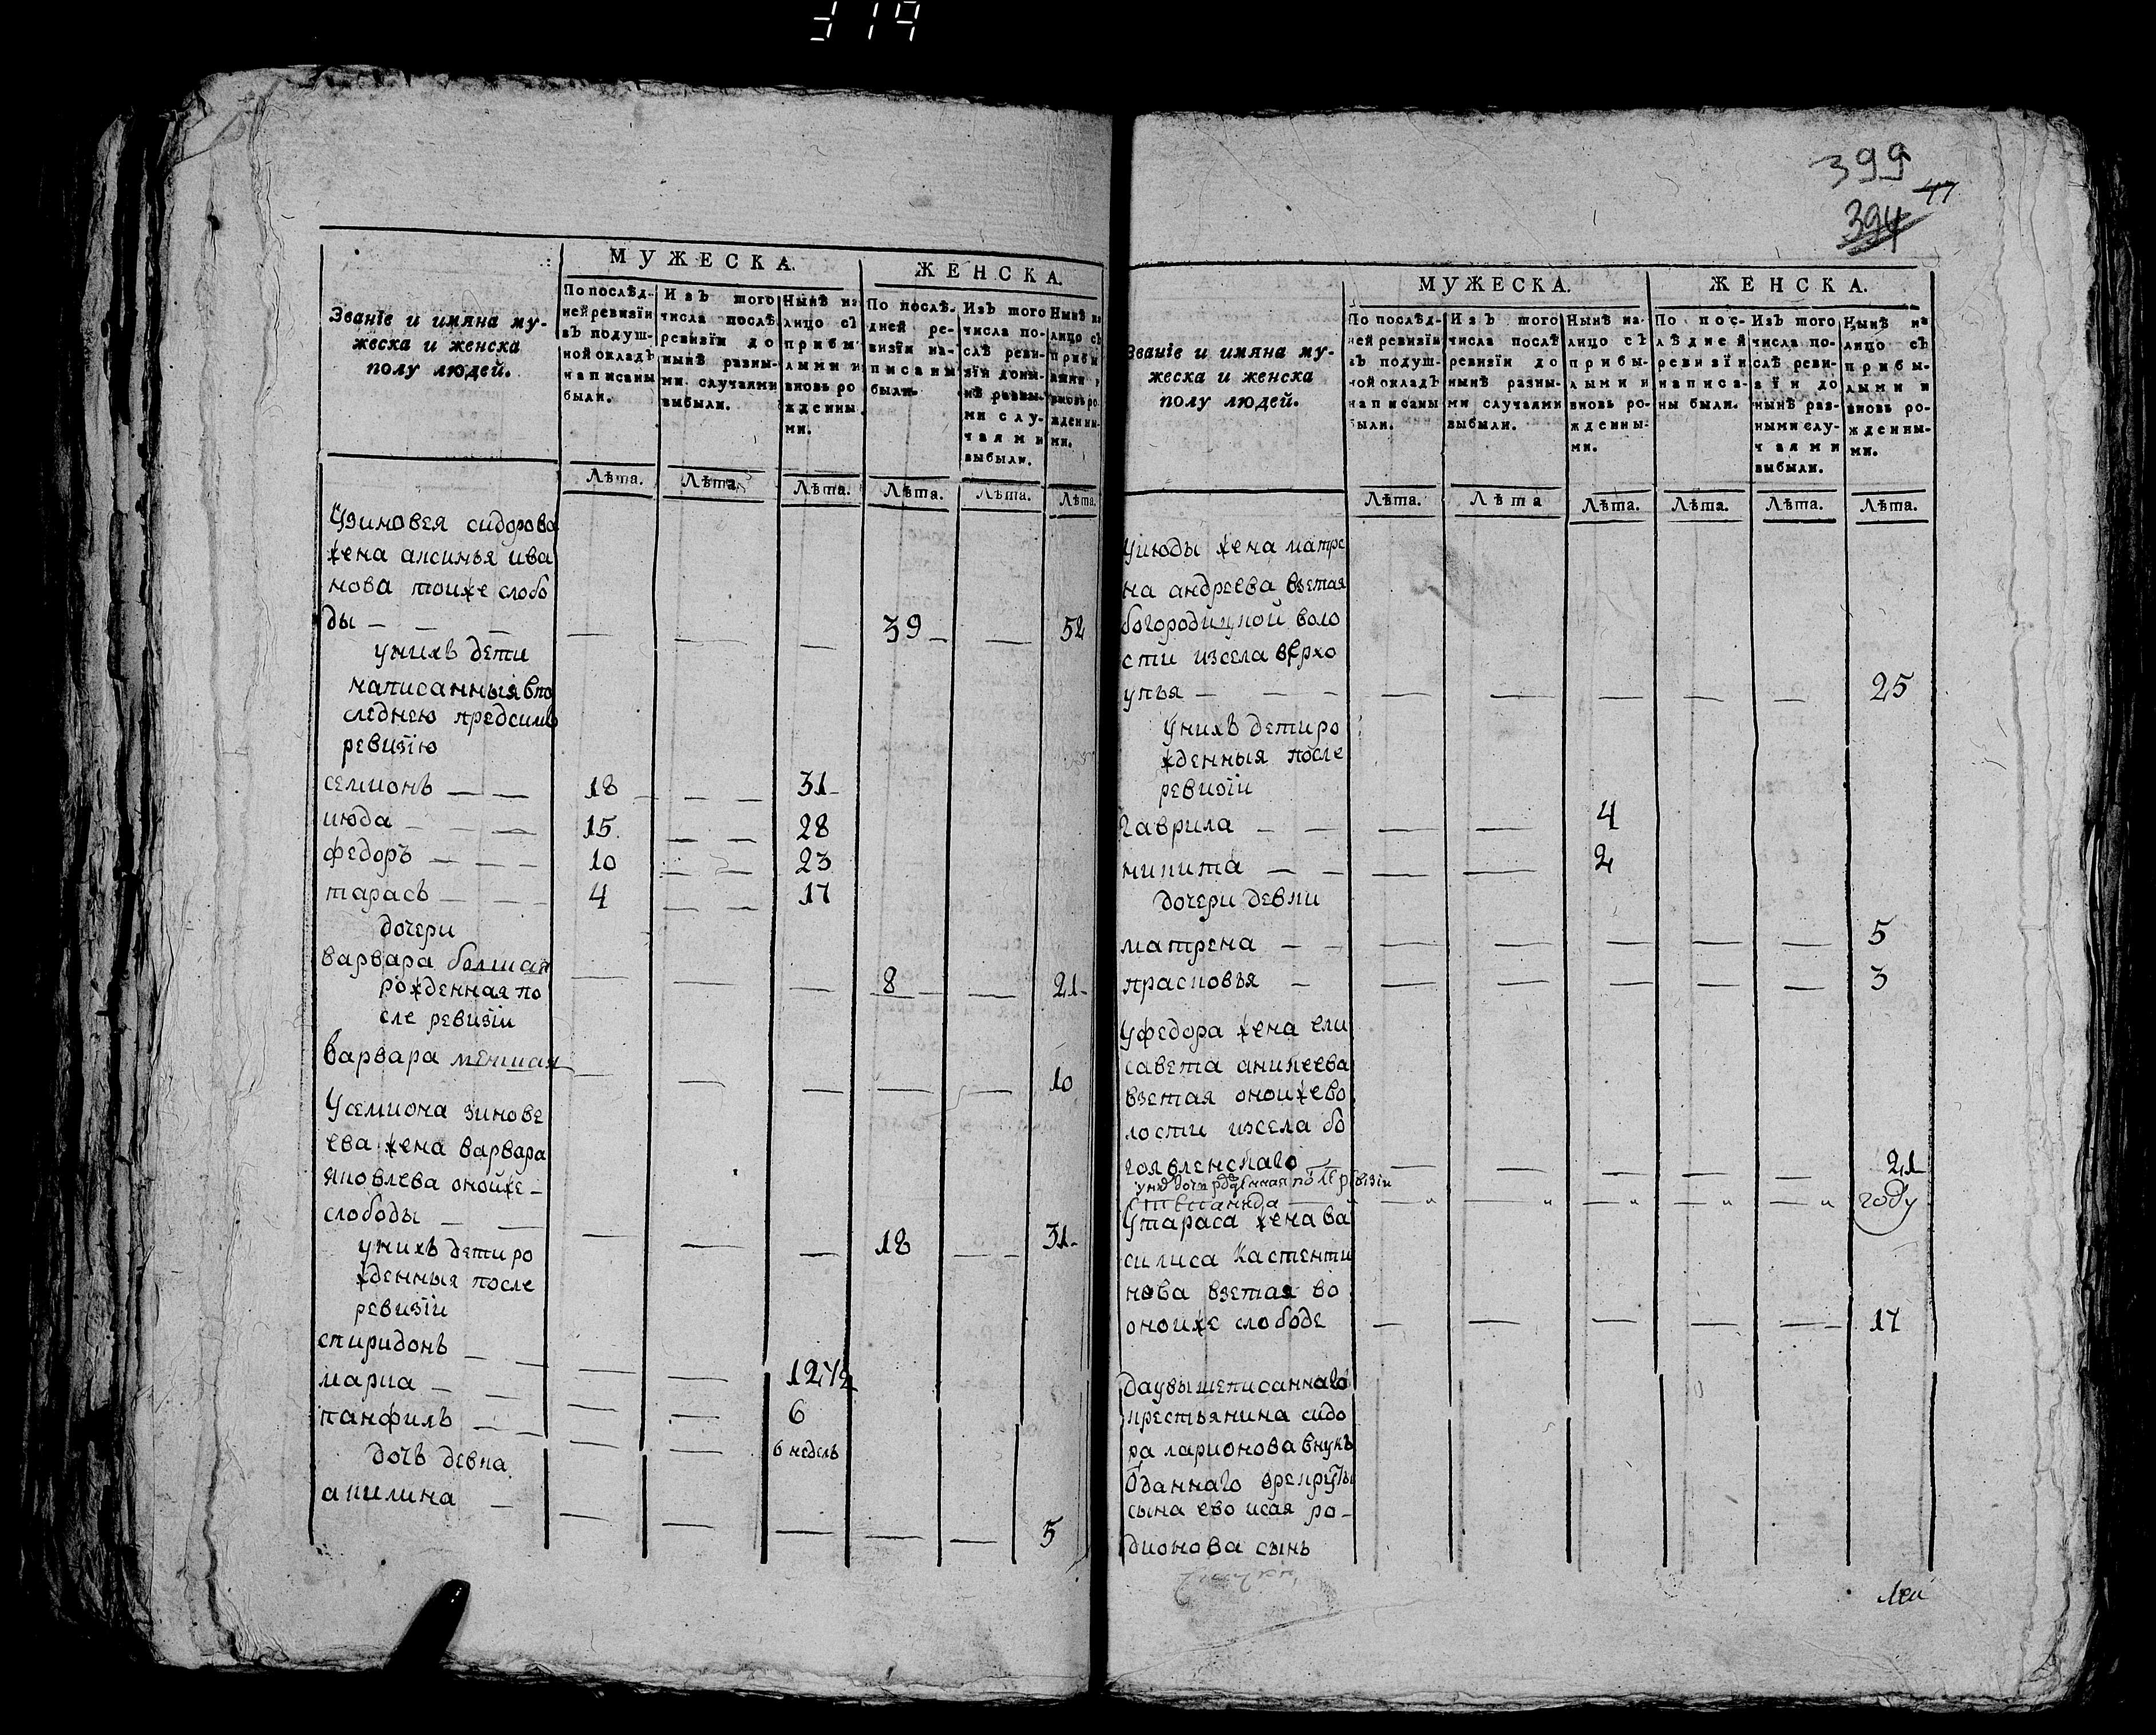 319
Званїе и имяна му-
жеска и женска
полу людей.
МУЖЕСКА.
ЖЕНСКА.
По послѣд-
ней ревизїи
въ подуш-
ной окладъ
написаны
были.
Изъ того
числа послѣ
ревизїи до
нынѣ разны-
ми случаями
выбыли.
Нынѣ на
лицо съ
прибы
лыми и
вновь ро
жденны
ми.
По послѣ-
дней ре-
визїи на-
писаны
были.
Изъ того
числа по-
слѣ реви-
зїи доны-
нѣ разны-
ми слу-
чаями
выбыли.
Нынѣ на
лицо съ
прибы
лыми и
вновь ро
жденны-
ми.
Лѣта. Лѣта. Лѣта. Лѣта. Лѣта. Лѣта.
Узиновея сидорова
жена аксинья ива
нова тоиже слобо
ды — — — — — — 39 — — 52
унихъ дети
написанныя впо
следнею предсимъ
ревизїю
семионъ — — 18 — — — 31
июда — — — 15 — — 28
федоръ — — — 10 — — 23
тарасъ — — — 4 — — 17
дочери
варвара болшая — — — 8 — — 21
рожденная по
сле ревизїи
варвара меншая — — — — — 10
Усемиона зинове
ева жена варвара
яковлева оноиже —
слободы — — — — — 18 — — 31
унихъ дети ро
жденныя после
ревизїи
спиридонъ — — — — 12 1/2
марка — — — — 6
панфилъ — — — — 6 недель
дочь девка
акилина — — — — — — 5
399
47
394
Званїе и имяна му-
жеска и женска
полу людей.
МУЖЕСКА.
ЖЕНСКА.
По послѣд-
ней ревизїи
въ подуш-
ной окладъ
написаны
были.
Изъ того
числа послѣ
ревизїи до
нынѣ разны-
ми случаями
выбыли.
Нынѣ на-
лицо съ
прибы-
лыми и
вновь ро-
жденны-
ми.
По пос-
лѣдней
ревизїи
написа-
ны были.
Изъ того
числа по-
слѣ реви-
зїи до
нынѣ раз-
ными слу-
чаями
выбыли.
Нынѣ на
лицо съ
прибы-
лыми и
вновь ро-
жденны-
ми.
Лѣта. Лѣта Лѣта. Лѣта. Лѣта. Лѣта.
Уиюды жена матре
на андреева взетая
богородицкой воло
сти изсела верхо
упья — — — — — — — — 25
Унихъ дети ро
жденныя после
ревизїи
гаврила — — — — 4
никита — — — — 2
дочери девки
матрена — — — — — — — 5
прасковья — — — — — — 3
Уфедора жена ели
савета аникеева
взетая оноиже во
лости изсела бо
гоявленскаго — — — — — 21
унихъ дочь рожденная после ревизїи
степанида — — — — — году
Утараса жена ва
силиса Кастенти
нова взетая во
оноиже слободе — — — — — 17
даувышеписаннаго
крестьянина сидо
ра ларионова внукъ
ѿданнаго врекруты
сына ево исая ро-
дионова сынъ